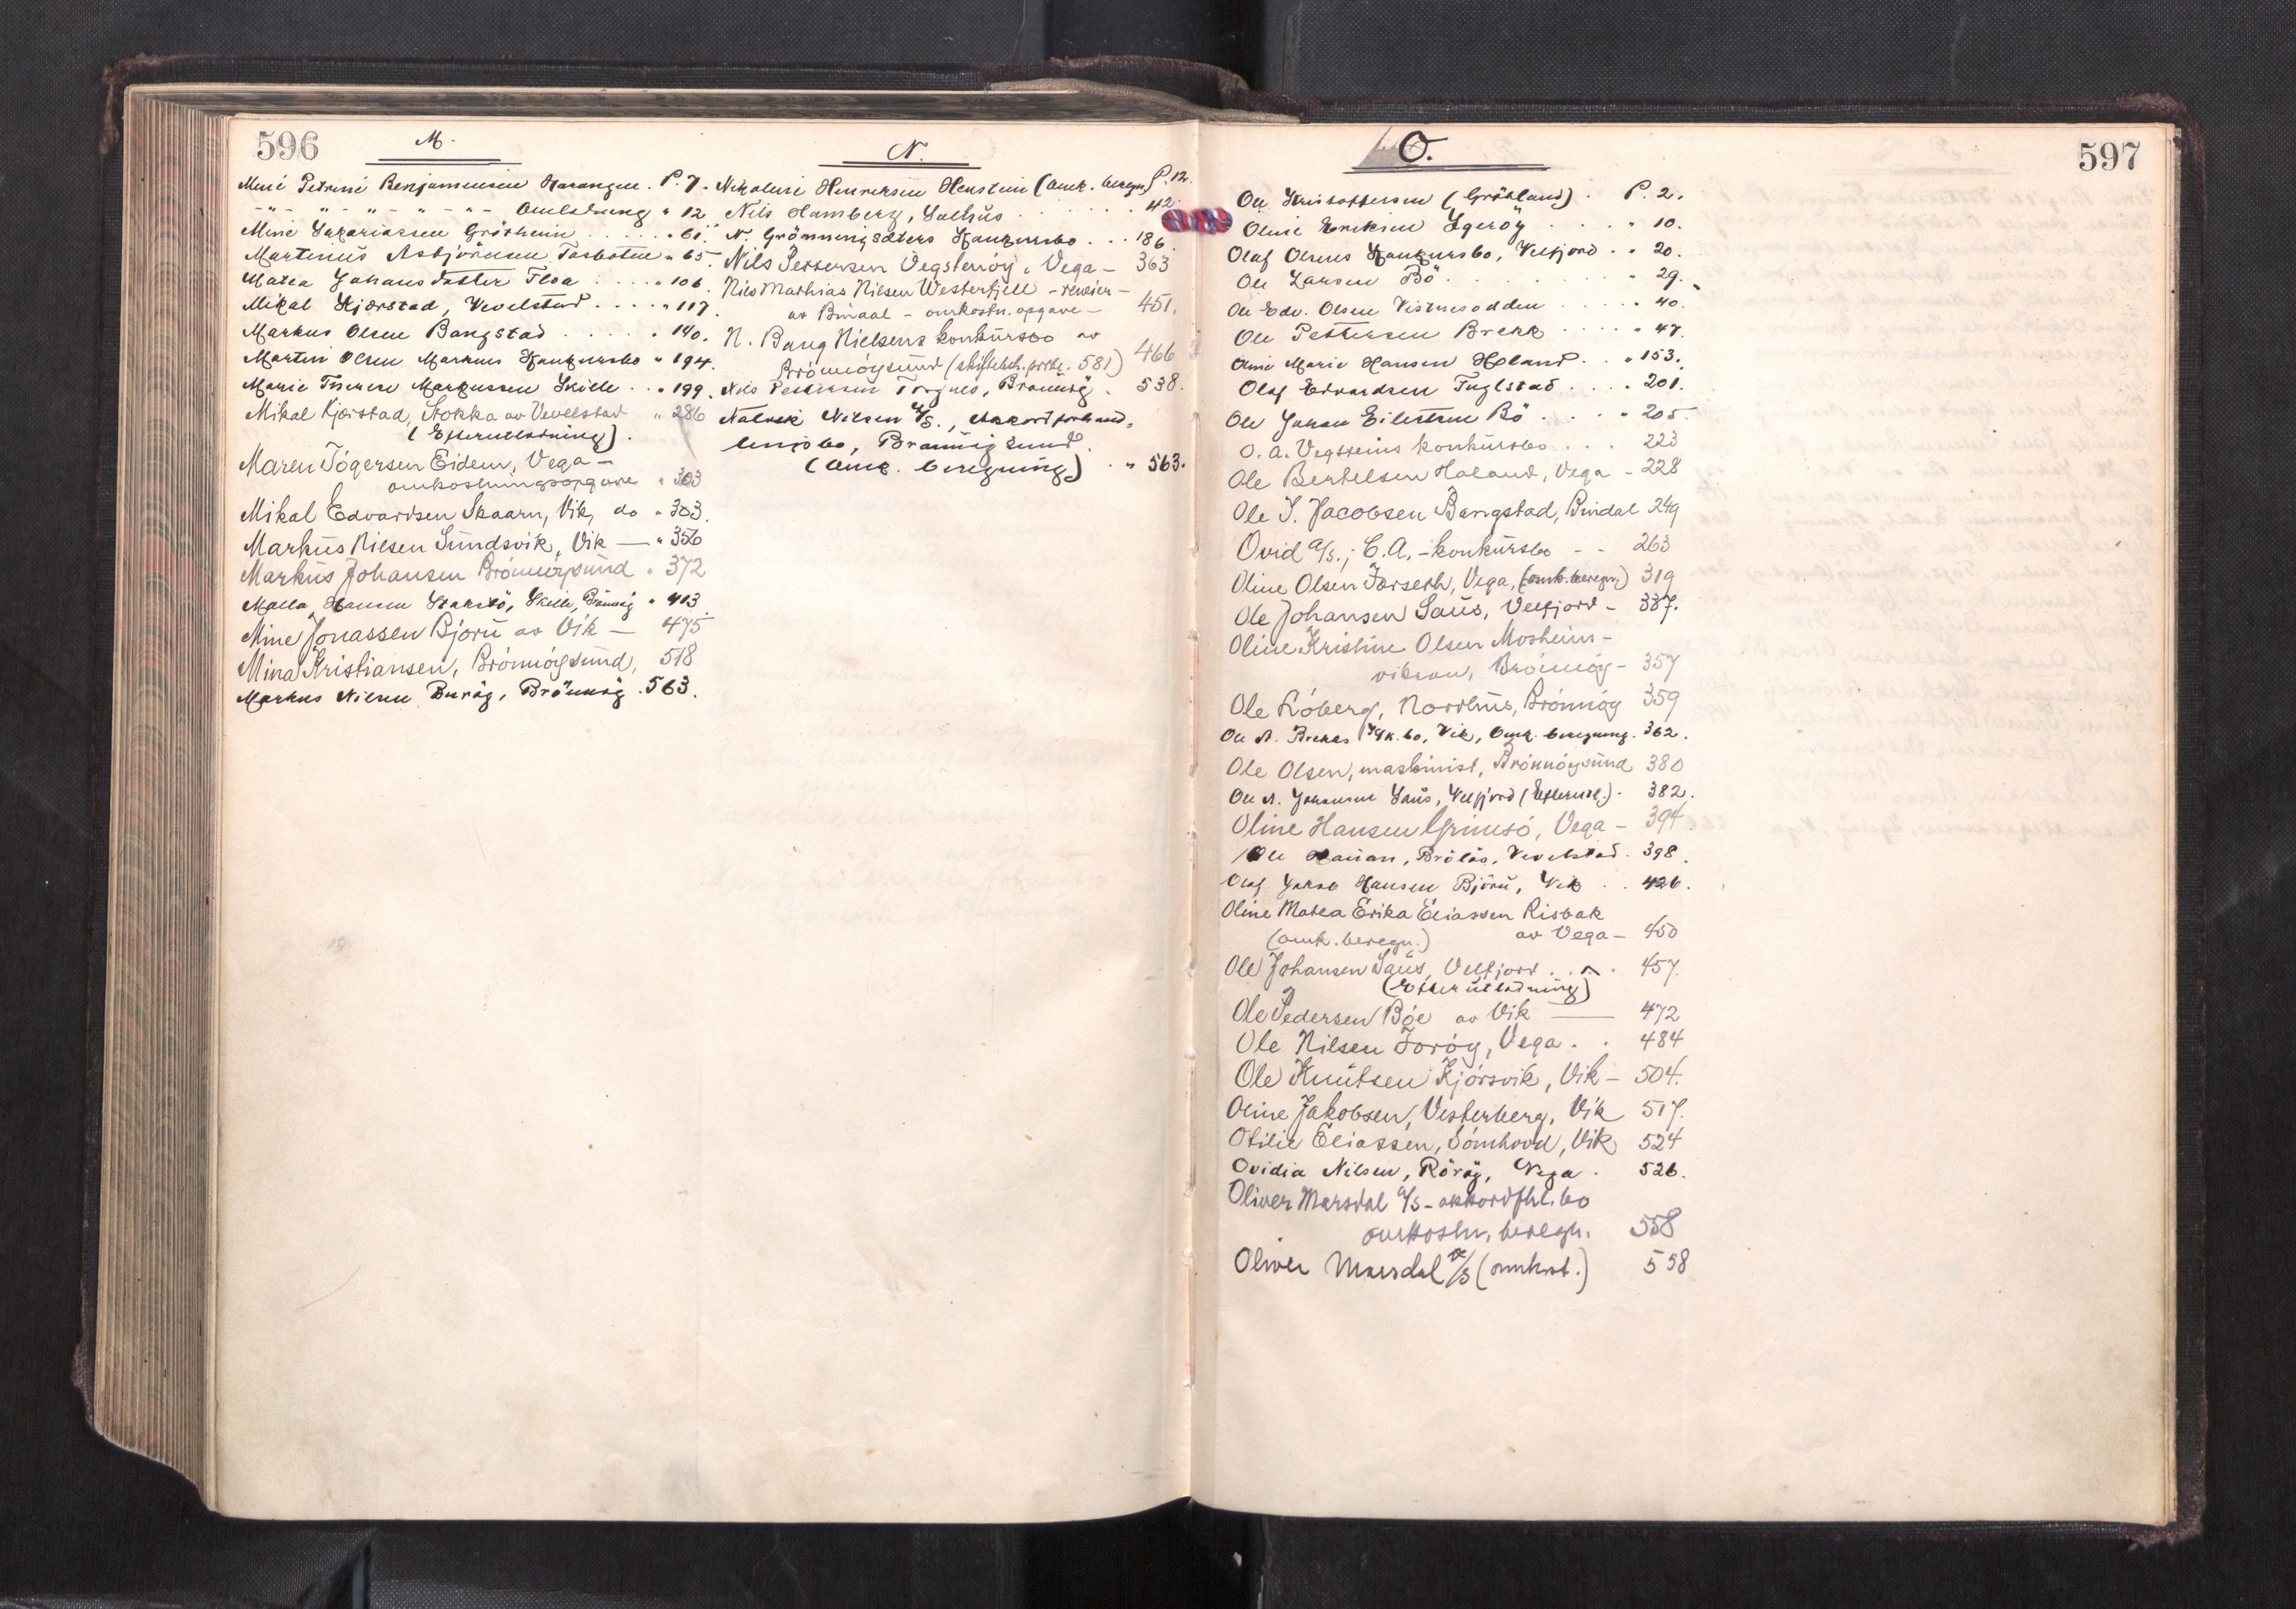 596
M.
Mine Petrine Benjaminsen Harangen. P. 7.
-"- -"- -"- Omlodning " 12
Mine Zakariassen Grörheim . . . . " 61.
Martinus Asbjörnsen Tosbotne " 65.
Matea Johansdatter Floa . . . . " 106.
Mikal Kjærstad, Vevelstad . . . . " 117.
Markus Olsen Bangstad . . . . . " 140.
Martin Olsen Markus Konkursbo " 194.
Marie Therese Markussen Skille . . " 199.
Mikal Kjærstad, Stokka av Vevelstad " 286
(Efterutlodning).
Maren Tögersen Eidem, Vega -
omkostningsopgave " 303
Mikal Edvardsen Skaarn, Vik, do " 303.
Markus Nilsen Sundsvik, Vik — " 356
Markus Johansen Brönnöysund " 372
Malla Hansen Skille, Brönnöy " 413
Mine Jonassen Bjøru av Vik — 475
Mina Kristiansen, Brönnöysund, 518
Markus Nilsen Buröy, Brönnöy . 563.
N.
Nikoline Henriksen Henstein (Omk. beregn) P. 12.
Nils Hamberg, Salhus . . . . . . " 42.
N. Grönningsæters Konkursbo . . . 186.
Nils Pettersen Vegstenöy, Vega - 363
Nils Mathias Nilsen Westerfjell - reveier -
av Bindal - omkostn. opgave - 451.
N. Bang Nielsens konkursbo av
Brönnöysund (skiftesch. prbr. 581) 466
Nils Pedersen Torgnes, Brönnöy . 538.
Natvik Nilsen A/S., Akkordforhand-
lingsbo, Brönnöysund.
(Omk. beregning) . " 563.
O.
597
Ole Kristoffersen (Gröbland) . P. 2.
Oline Eriksen Ygeröy . . . . " 10.
Olaf Olsens Konkursbo, Velfjord . " 20.
Ole Larsen Bö . . . . . . " 29.
Ole Edv. Olsen Vistnesodden . . . . " 40.
Ole Pettersen Brekk . . . . " 47.
Oline Marie Hansen Höland . . " 153.
Olaf Edvardsen Fuglstad . . . . 201.
Ole Johan Eilertsen Bö . . . " 205.
O. A. Vegsteins konkursbo . . . 223
Ole Bertelsen Haland, Vega - 228
Ole S. Jacobsen Bangstad, Bindal 249
Ovid A/S.; C.A. - konkursbo - - 263
Oline Olsen Færseth, Vega, (omk. beregn.) 319
Ole Johansen Saus, Velfjord - 337.
Oline Kristine Olsen Mosheim-
vikran, Brönnöy - 357
Ole Löberg, Nordhus, Brönnöy 359
Ole A. Brekks Kk. bo, Vik, Omk. beregning. 362.
Ole Olsen, maskinist, Brönnöysund 380
Ole A. Johansen Saus, Velfjord (Efterutl.) . 382.
Oline Hansen Grimsö, Vega - 394.
Ole Hanan, Brölös, Vevelstad . 398.
Olaf Jakob Hansen Björu, Vik . . 426.
Oline Matea Erika Eliassen Risbak
(omk. beregn.) av Vega - 450
Ole Johansen Saus, Velfjord . . . 457.
(Efterutlodning)
Ole Pedersen Böe av Vik — 472
Ole Nilsen Foröy, Vega . . 484
Ole Knutsen Kjörsvik, Vik - 504.
Oline Jakobsen, Vesterberg, Vik 517.
Otilie Eliassen, Sömhovd, Vik 524
Ovidia Nilsen, Röröy, Vega . 526.
Oliver Marsdal A/S - akkordfhl. bo
omkostn. beregn. 558
Oliver Marsdal A/S (omkost.) 558